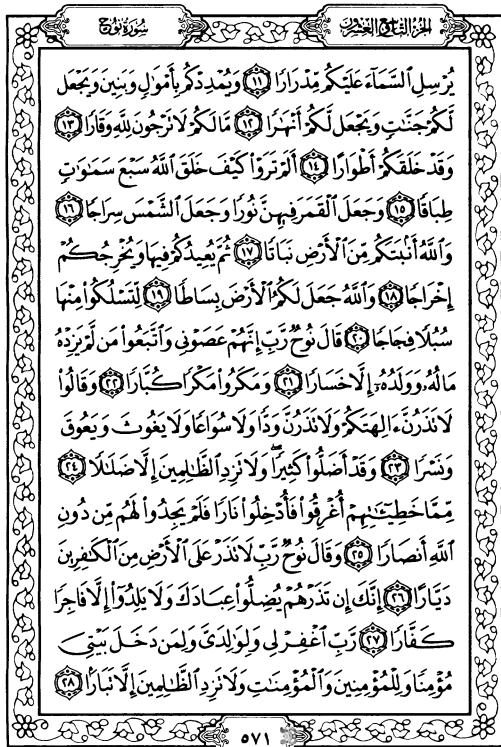 سُورَةُ نُوحٍ
الجُزْءُ التَّاسِعُ وَالعِشْرُونَ
يُرْسِلِ ٱلسَّمَآءَ عَلَيْكُم مِّدْرَارًا ١١ وَيُمْدِدْكُم بِأَمْوَٰلٍ وَبَنِينَ وَيَجْعَل
لَّكُمْ جَنَّٰتٍ وَيَجْعَل لَّكُمْ أَنْهَٰرًا ١٢ مَّا لَكُمْ لَا تَرْجُونَ لِلَّهِ وَقَارًا ١٣
وَقَدْ خَلَقَكُمْ أَطْوَارًا ١٤ أَلَمْ تَرَوْا۟ كَيْفَ خَلَقَ ٱللَّهُ سَبْعَ سَمَٰوَٰتٍ
طِبَاقًا ١٥ وَجَعَلَ ٱلْقَمَرَ فِيهِنَّ نُورًا وَجَعَلَ ٱلشَّمْسَ سِرَاجًا ١٦
وَٱللَّهُ أَنۢبَتَكُم مِّنَ ٱلْأَرْضِ نَبَاتًا ١٧ ثُمَّ يُعِيدُكُمْ فِيهَا وَيُخْرِجُكُمْ
إِخْرَاجًا ١٨ وَٱللَّهُ جَعَلَ لَكُمُ ٱلْأَرْضَ بِسَاطًا ١٩ لِّتَسْلُكُوا۟ مِنْهَا
سُبُلًا فِجَاجًا ٢٠ قَالَ نُوحٌ رَّبِّ إِنَّهُمْ عَصَوْنِى وَٱتَّبَعُوا۟ مَن لَّمْ يَزِدْهُ
مَالُهُۥ وَوَلَدُهُۥٓ إِلَّا خَسَارًا ٢١ وَمَكَرُوا۟ مَكْرًا كُبَّارًا ٢٢ وَقَالُوا۟
لَا تَذَرُنَّ ءَالِهَتَكُمْ وَلَا تَذَرُنَّ وَدًّا وَلَا سُوَاعًا وَلَا يَغُوثَ وَيَعُوقَ
وَنَسْرًا ٢٣ وَقَدْ أَضَلُّوا۟ كَثِيرًا ۖ وَلَا تَزِدِ ٱلظَّٰلِمِينَ إِلَّا ضَلَٰلًا ٢٤
مِّمَّا خَطِيٓـَٰٔتِهِمْ أُغْرِقُوا۟ فَأُدْخِلُوا۟ نَارًا فَلَمْ يَجِدُوا۟ لَهُم مِّن دُونِ
ٱللَّهِ أَنصَارًا ٢٥ وَقَالَ نُوحٌ رَّبِّ لَا تَذَرْ عَلَى ٱلْأَرْضِ مِنَ ٱلْكَٰفِرِينَ
دَيَّارًا ٢٦ إِنَّكَ إِن تَذَرْهُمْ يُضِلُّوا۟ عِبَادَكَ وَلَا يَلِدُوٓا۟ إِلَّا فَاجِرًا
كَفَّارًا ٢٧ رَّبِّ ٱغْفِرْ لِى وَلِوَٰلِدَىَّ وَلِمَن دَخَلَ بَيْتِىَ
مُؤْمِنًا وَلِلْمُؤْمِنِينَ وَٱلْمُؤْمِنَٰتِ وَلَا تَزِدِ ٱلظَّٰلِمِينَ إِلَّا تَبَارًۢا ٢٨
٥٧١